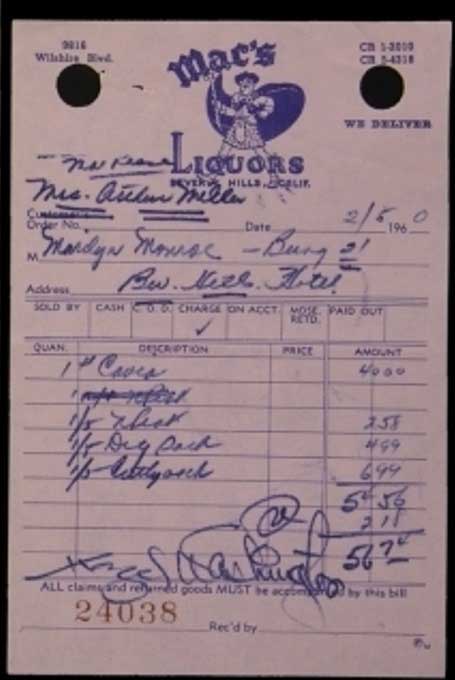 9816
Wilshire Blvd.
Mac's
CR 1-2010
CR 5-4318
WE DELIVER
LIQUORS
BEVERLY HILLS, CALIF.
Mrs. Arthur Miller
Customer's
Order No.
Date 2/5 1960
M Marilyn Monroe - Bung 21
Address Bev. Hills. Hotel
SOLD BY CASH C. O. D. CHARGE ON ACCT. MDSE. RETD. PAID OUT
✓
QUAN. DESCRIPTION PRICE AMOUNT
1 # 4000
1
1/5 258
1/5 499
1/5 699
54 56
2 18
56 74
ALL claims and returned goods MUST be accompanied by this bill
24038
Rec'd by